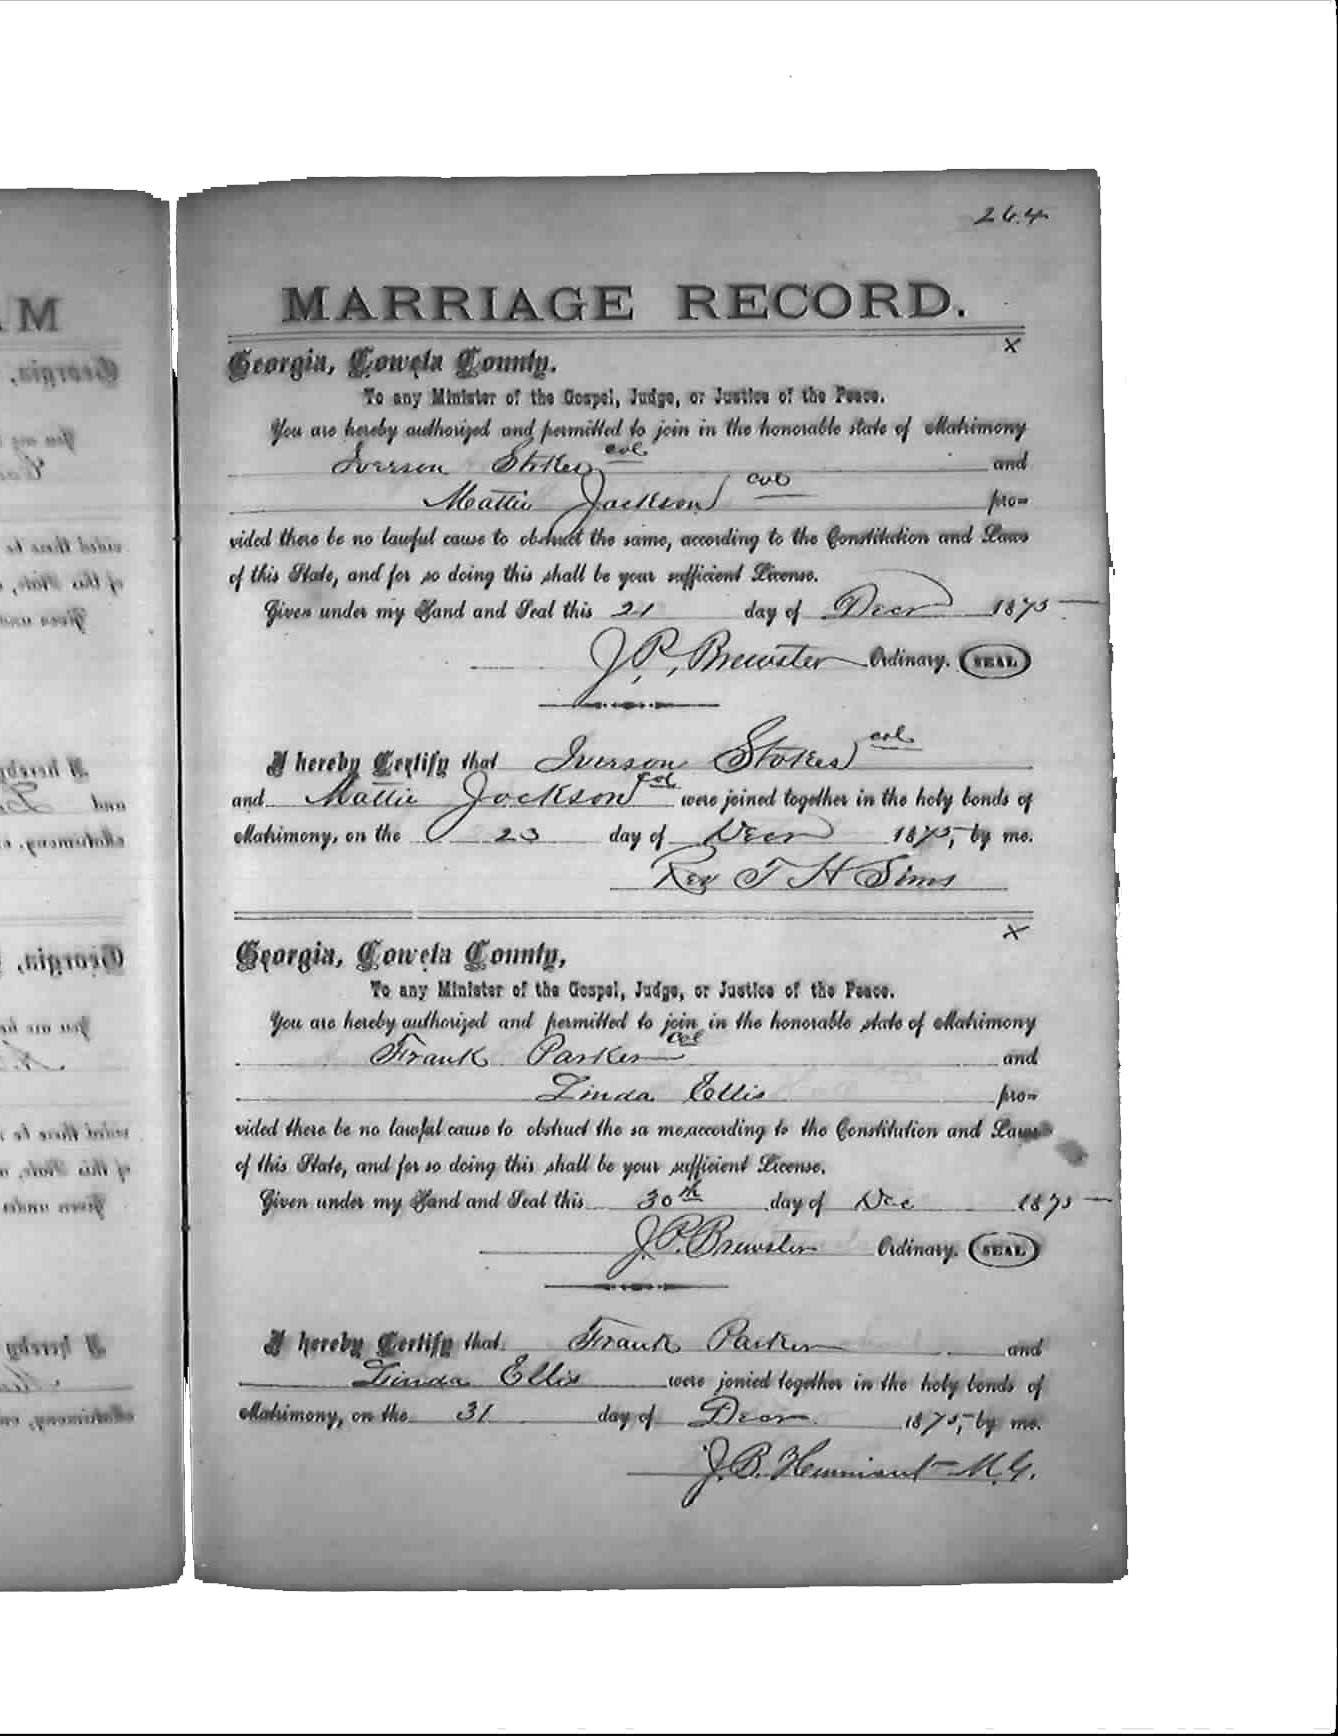 264
MARRIAGE RECORD.
x
Georgia, Coweta County.
To any Minister of the Gospel, Judge, or Justice of the Peace.
You are hereby authorized and permitted to join in the honorable state of Matrimony
Iverson Stokes col and
Mattie Jackson col pro-
vided there be no lawful cause to obstruct the same, according to the Constitution and Laws
of this State, and for so doing this shall be your sufficient License.
Given under my Hand and Seal this 21 day of Decr 1875
J. P. Brewster Ordinary. SEAL
I hereby Certify that Iverson Stokes col
and Mattie Jackson col were joined together in the holy bonds of
Matrimony, on the 23 day of Decr 1875, by me.
Rev T H Sims
x
Georgia, Coweta County,
To any Minister of the Gospel, Judge, or Justice of the Peace.
You are hereby authorized and permitted to join in the honorable state of Matrimony
Frank Parker col and
Linda Ellis pro-
vided there be no lawful cause to obstruct the sa me, according to the Constitution and Laws
of this State, and for so doing this shall be your sufficient License.
Given under my Hand and Seal this 30th day of Dec 1875
J. P. Brewster Ordinary. SEAL
I hereby Certify that Frank Parker and
Linda Ellis were jonied together in the holy bonds of
Matrimony, on the 31 day of Decr 1875, by me.
J. B. M. G.